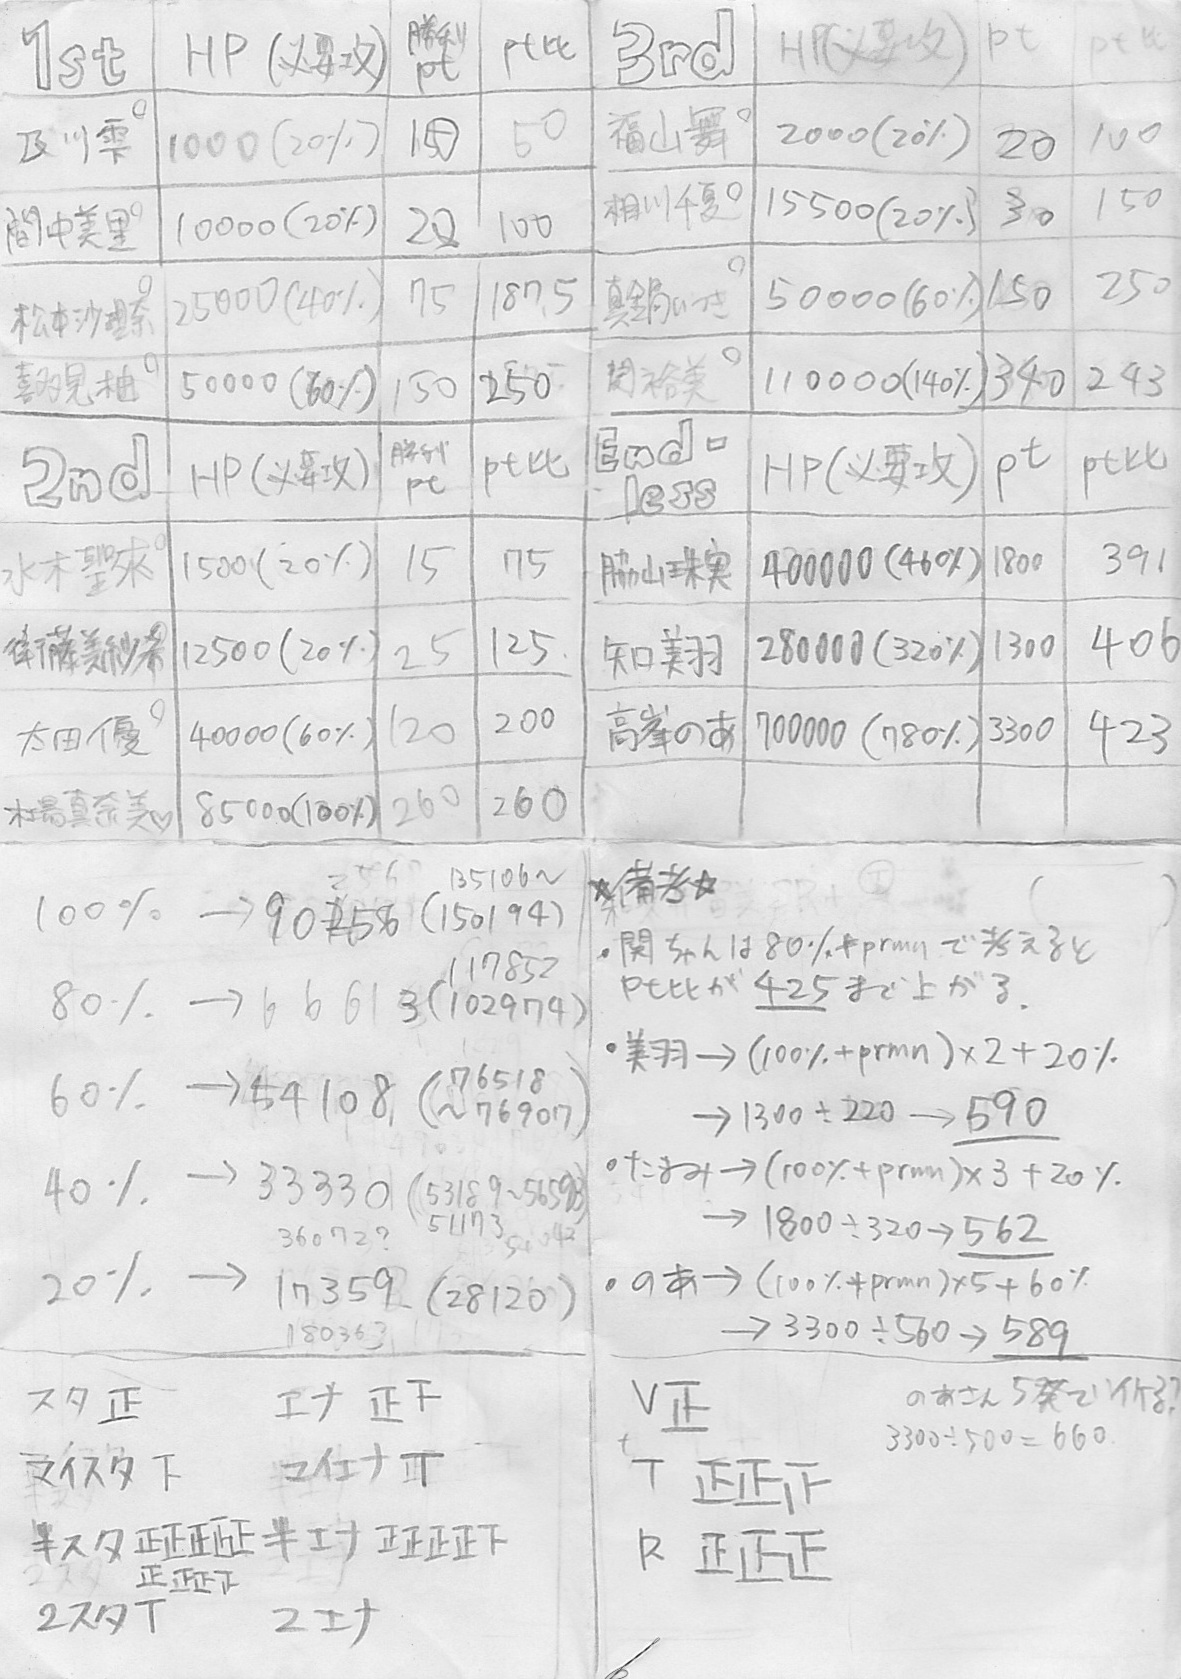 1st HP (必要攻) 勝利pt pt比
及川雫 1000(20%) 10 50
間中美里 10000(20%) 20 100
松本沙理奈 25000(40%) 75 187.5
喜多見柚 50000(60%) 150 250
2nd HP(必要攻) 勝利pt pt比
水木聖來 1500(20%) 15 75
衛藤美紗希 12500(20%) 25 125
太田優 40000(60%) 120 200
木場真奈美♡ 85000(100%) 260 260
3rd HP(必要攻) pt pt比
福山舞 2000(20%) 20 100
相川千夏 15500(20%) 30 150
真鍋いつき 50000(60%) 150 250
関裕美 110000(140%) 340 243
End-less HP(必要攻) pt pt比
脇山珠美 400000(460%) 1800 391
矢口美羽 280000(320%) 1300 406
高峯のあ 700000(780%) 3300 423
135106~
100% → (150194)
117852
80% → 66613(102974)
60% → 54108 (76518
~76907)
40% → 33330
36072?
51173
20% → 17359 (28120)
180363
☆備考☆
・関ちゃんは80%+prmnで考えると
pt比が425まで上がる。
・美羽→(100%+prmn)×2+20%
→1300÷220→590
・たまみ→(100%+prmn)×3+20%
→1800÷320→562
・のあ→(100%+prmn)×5+60%
→3300÷560→589
スタ 正 エナ 正下
マイスタ 下 マイエナ
半スタ 正正正正正 半エナ 正正正正下
正正正
2スタT 2エナ
V 正
T 正正下
R 正正正
のあさん5発でイケる?
3300÷500=660